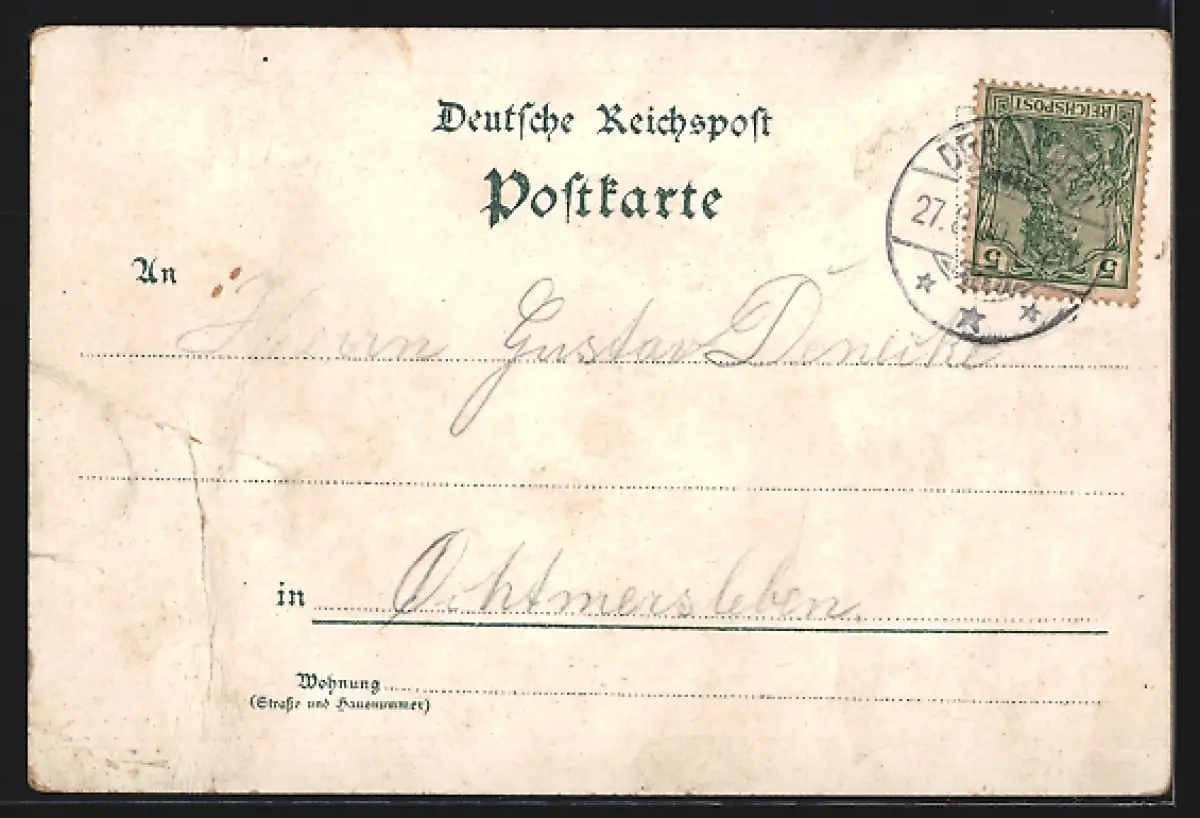 Deutsche Reichspost
Postkarte
REICHSPOST
5 5
27.
An Herrn Gustav Denecke
in Ochtmersleben
Wohnung
(Straße und Hausnummer)